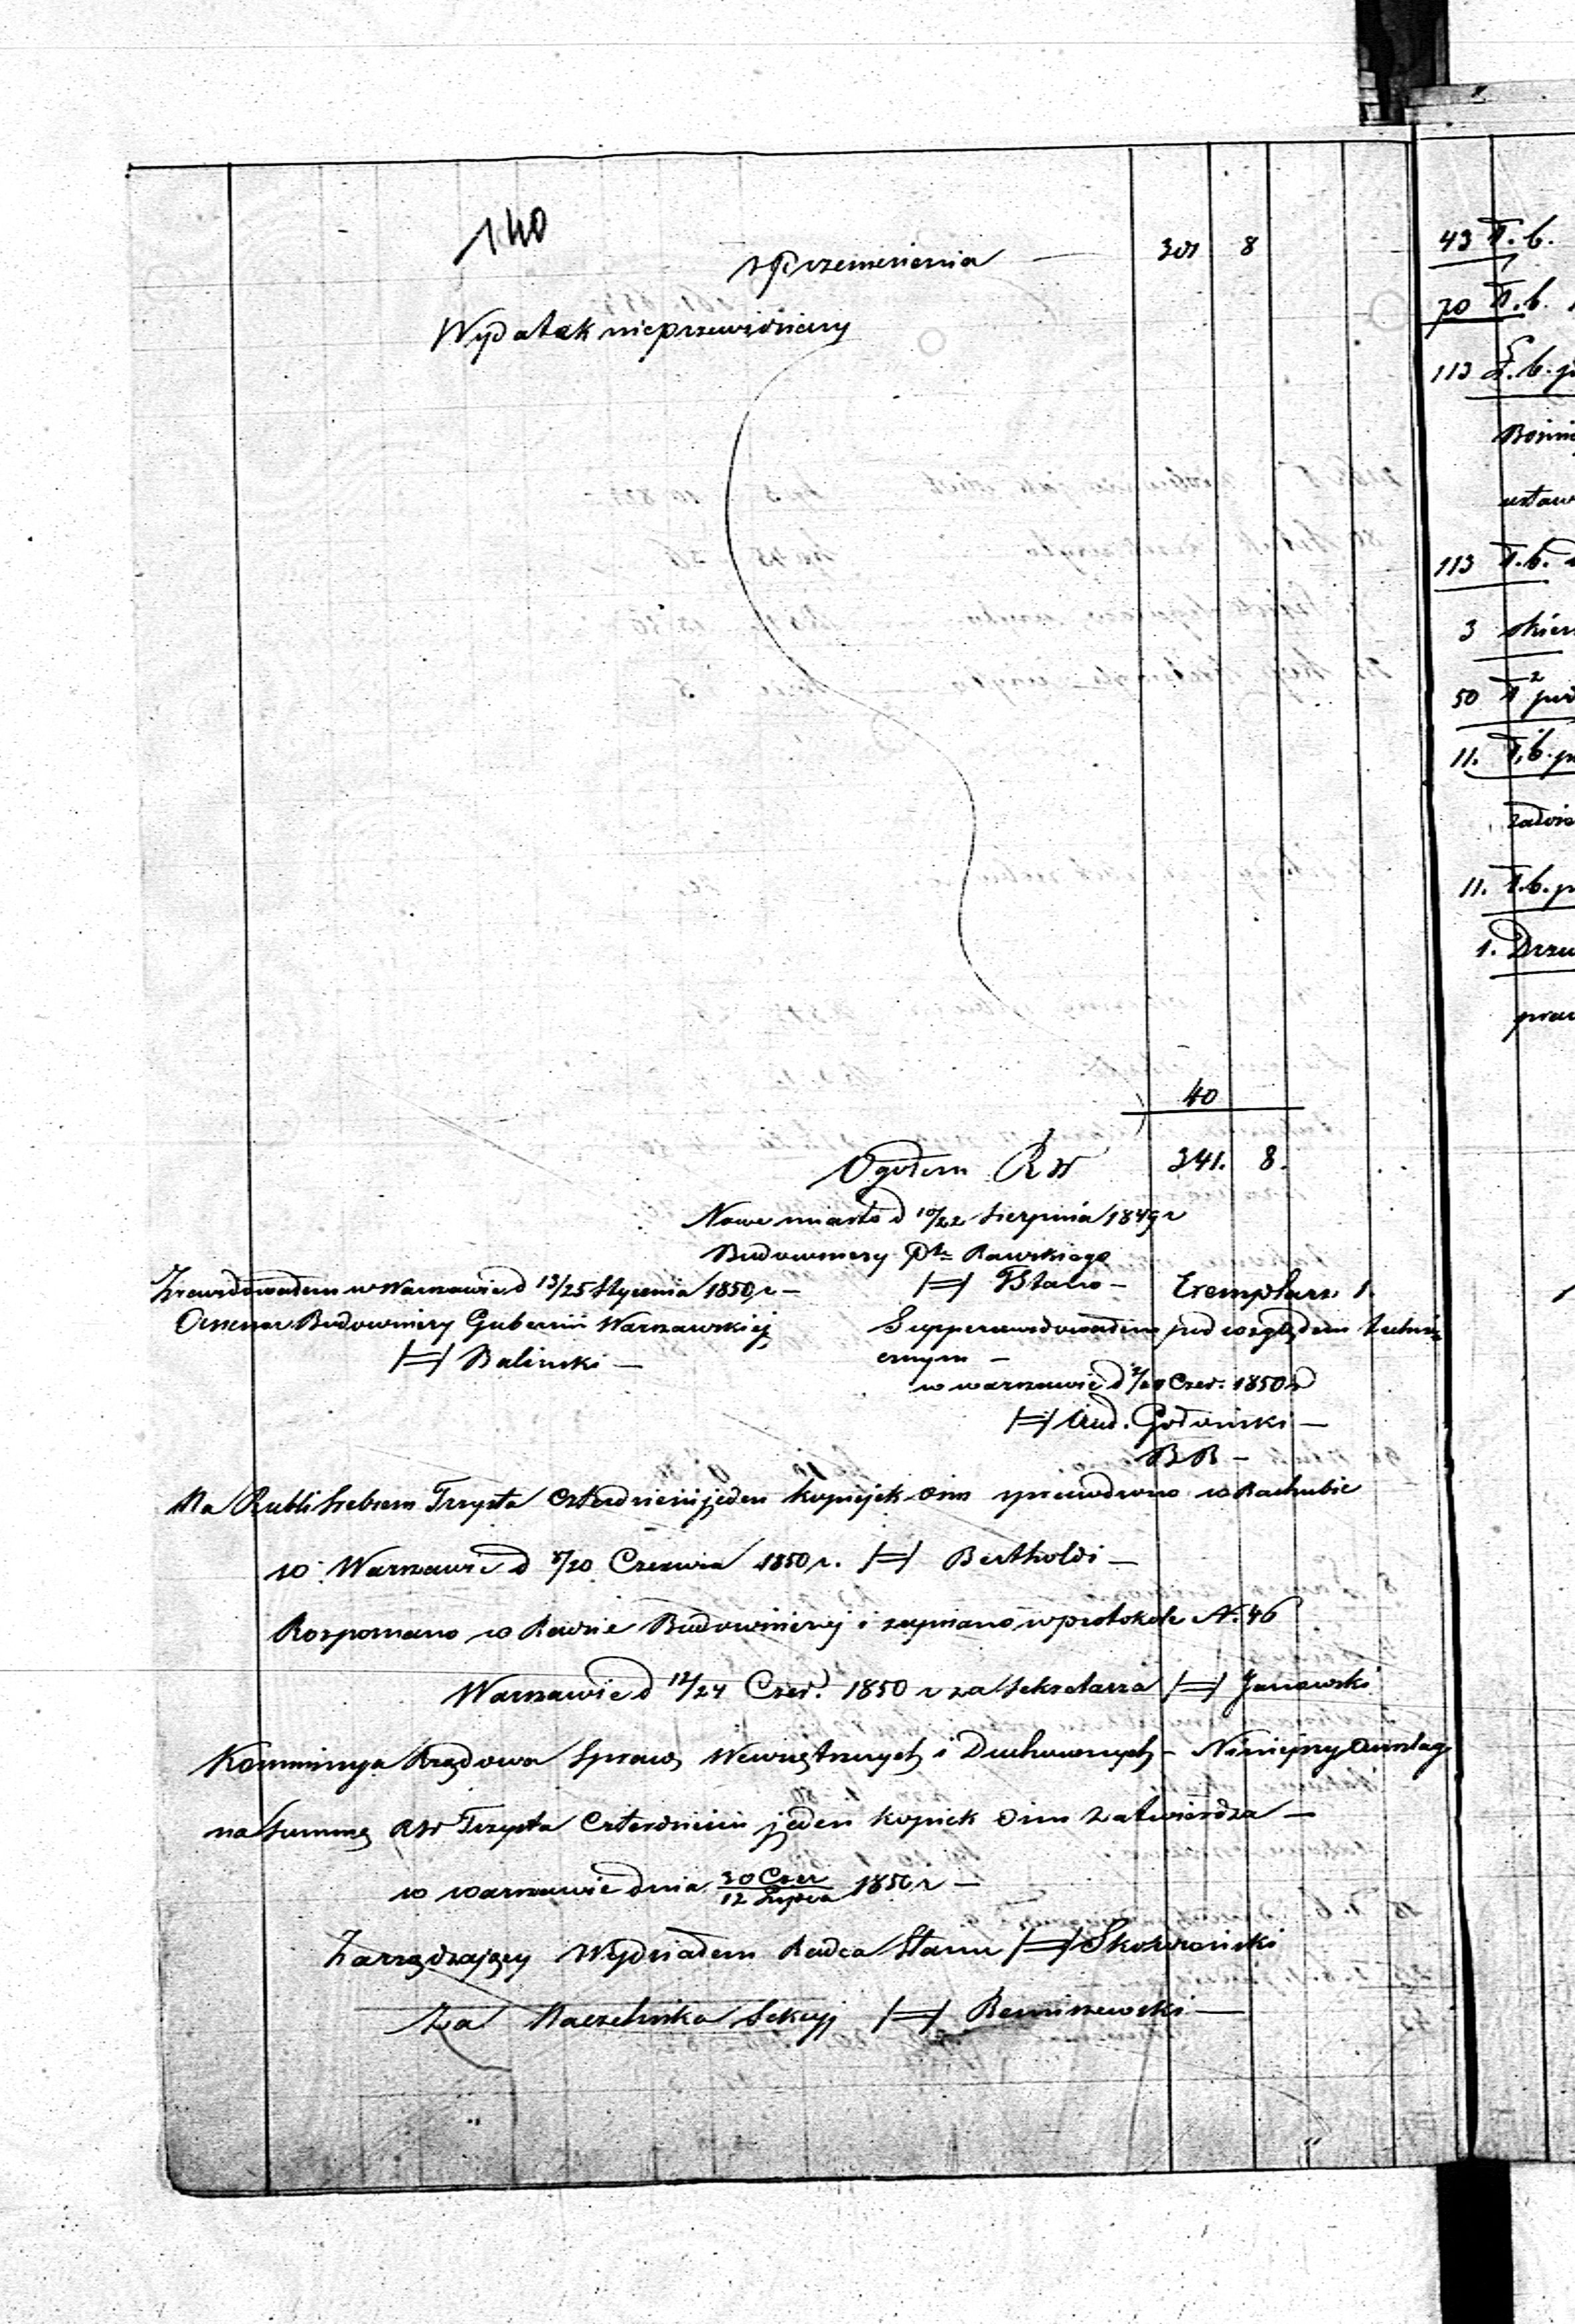 140
z Przeniesienia — 301 8
Wydatek nieprzewidziany
40
Ogółem Rsr 341. 8.
Nowe miasto d 10/22 Sierpnia 1849 r
Budowniczy Ptu Rawskiego
Zrewidowałem w Warszawie d 13/25 Stycznia 1850 r —
/=/ —
Exemplarz 1.
Assessor Budowniczy Gubernii Warszawskiej
/=/ Balinski —
Superrewidowałem pod względem technicznym —
w warszawie d Czer. 1850 r
/=/ Aud. Gołoński —
BB —
Na Rubli Srebrem Trzysta czterdzieści jeden kopiejek ośm sprawdzono w Rachubie
w Warszawie d 8/20 Czerwca 1850 r. /=/ Bertholdi —
Rozpoznano w Radzie Budowniczej i zapisano w protokole N. 46
Warszawie d 12/24 Czer. 1850 r za Sekretarza /=/ Janowski
Kommissya Rządowa Spraw Wewnętrznych i Duchownych — Niniejszy Anszlag
na Summę RSr Trzysta Czterdzieści jeden kopiek ośm zatwierdza —
w warszawie dnia 30 Czer / 12 Lipca 1850 r —
Zarządzający Wydziałem Radca Stanu /=/ Skowroński
Za Naczelnika Sekcyj /=/ Bemiszewski —
43 T. b.
70 T. b.
113 T. b. p
113 T. b.
3
50
11. T. b. p
11. T. b. p
1.